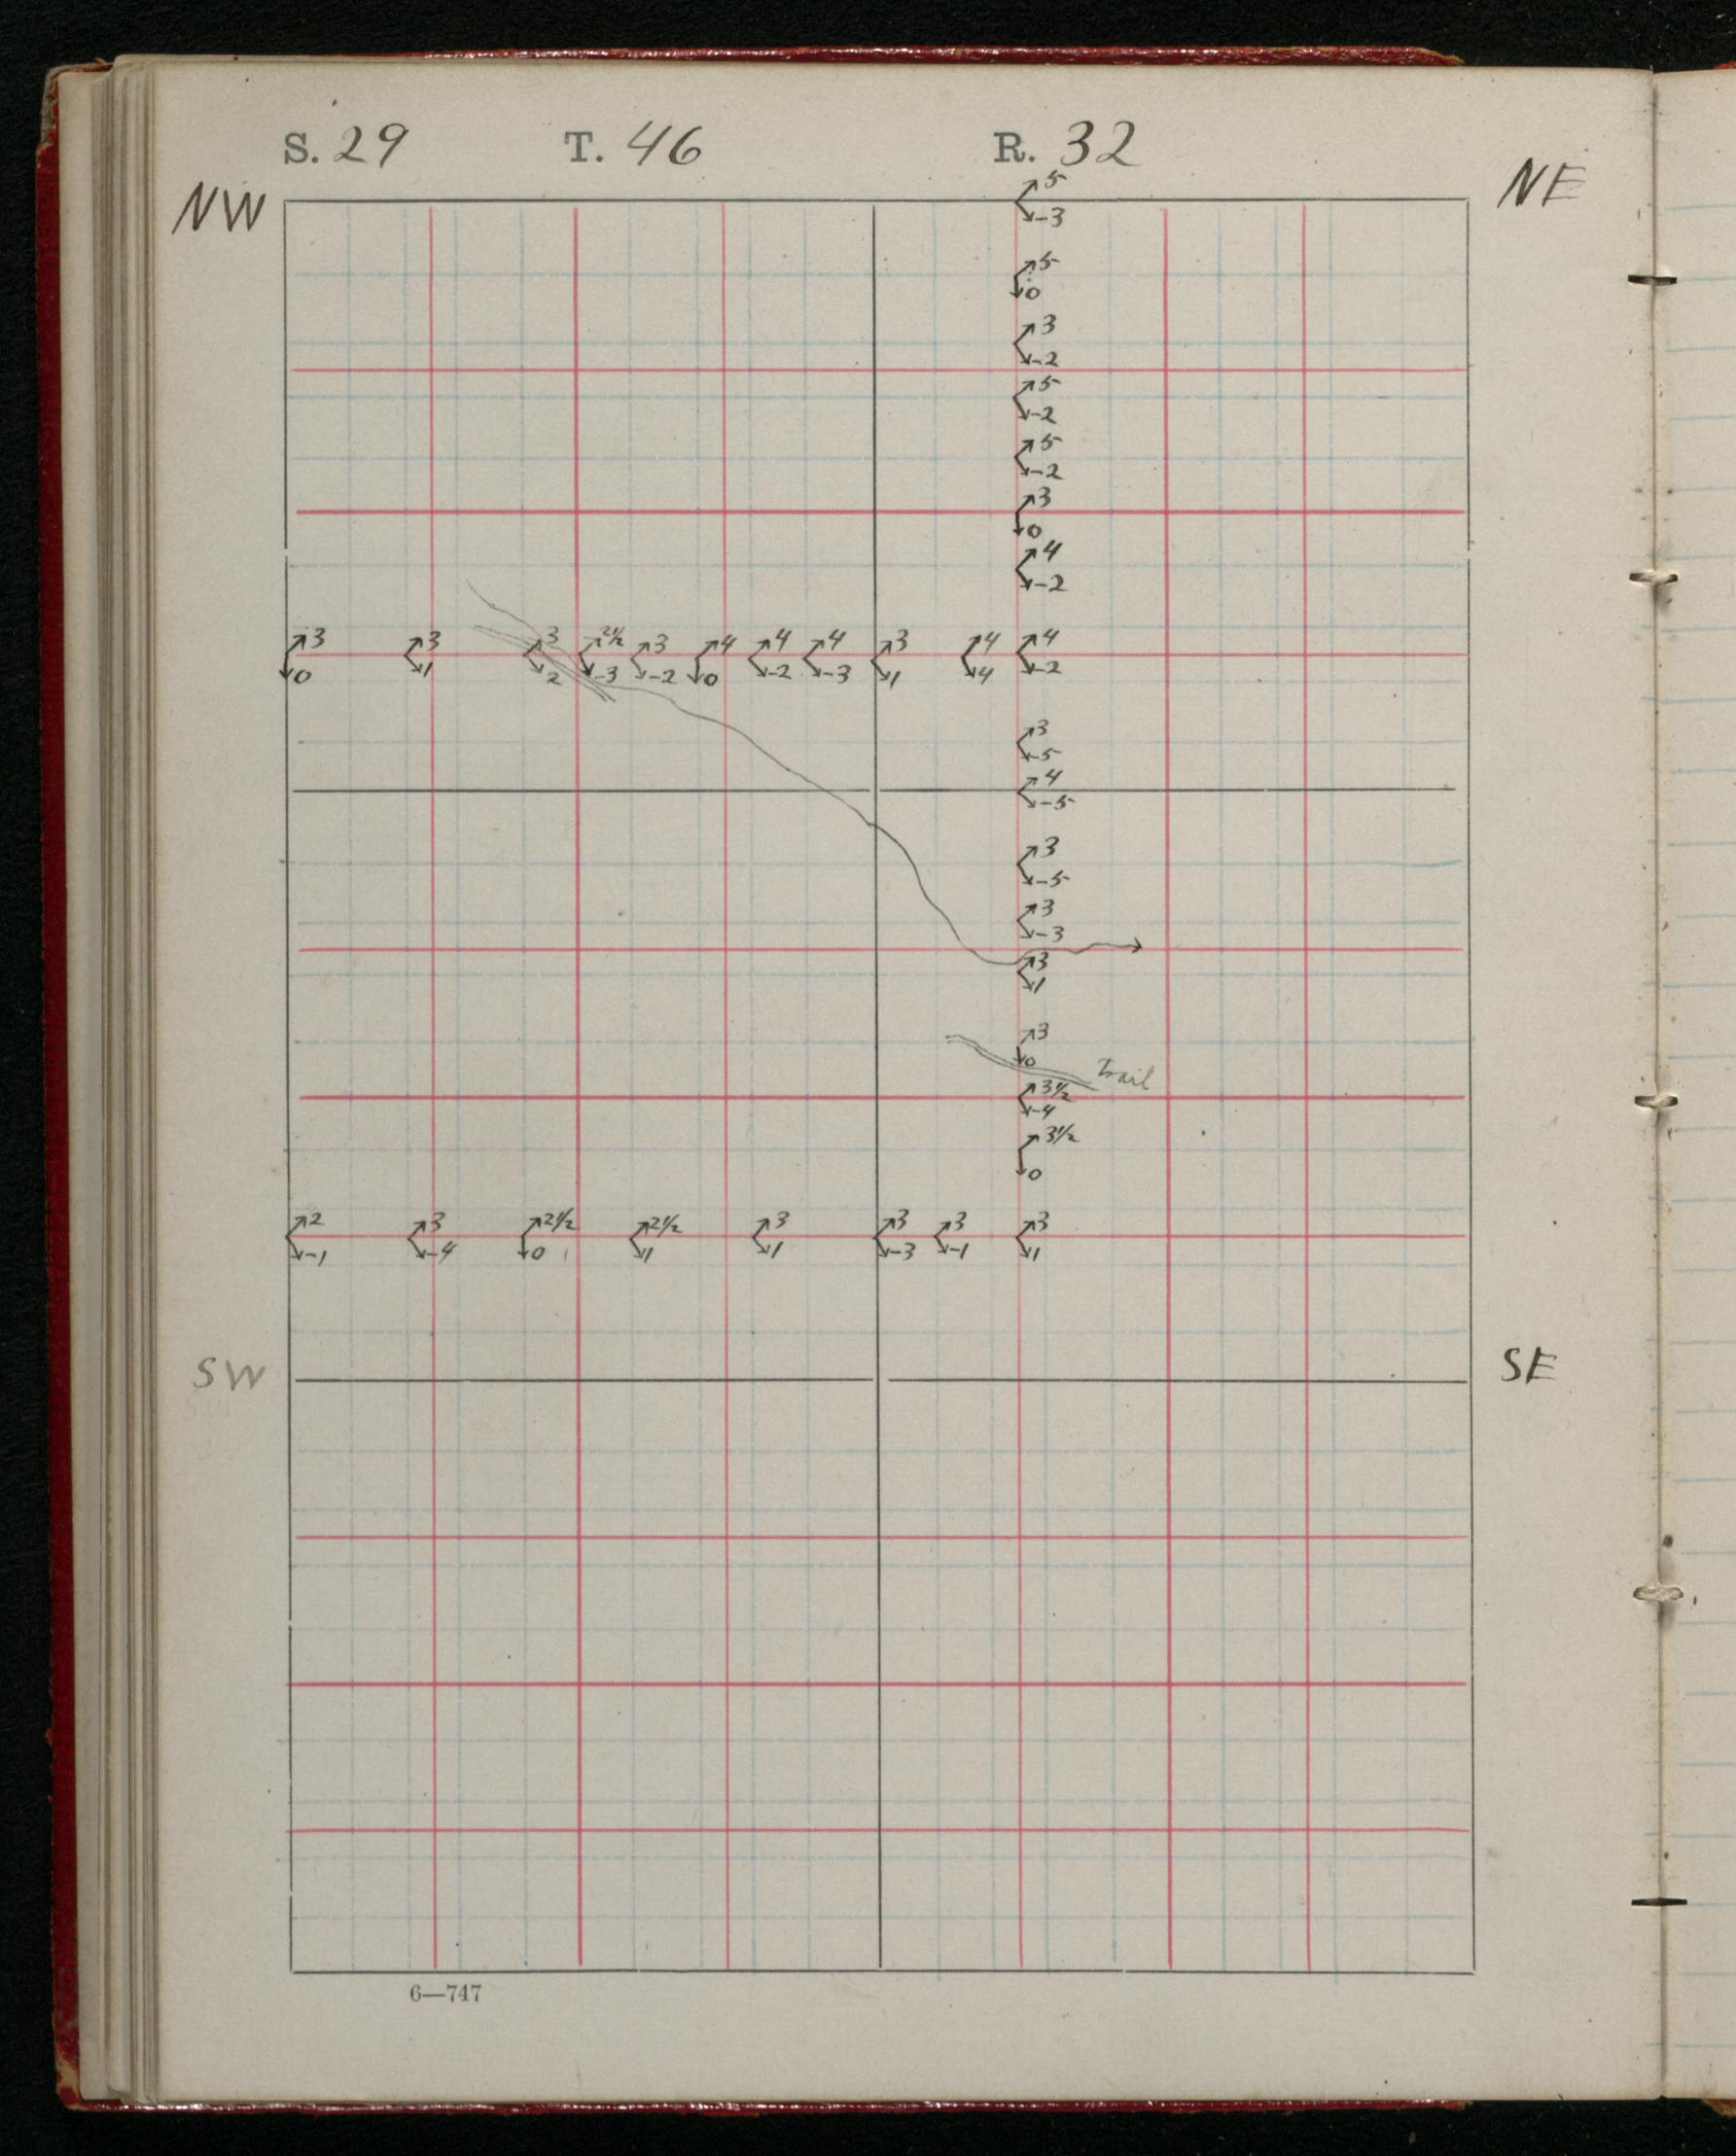 S. 29 T. 46 R. 32
NW NE
5
-3
5
0
3
-2
5
-2
5
-2
3
0
4
-2
3 3 3 2½ 3 4 4 4 3 4 4
0 1 2 -3 -2 0 -2 -3 1 4 -2
3
-5
4
-5
3
-5
3
-3
3
1
3
0
Trail
3½
-4
3½
0
2 3 2½ 2½ 3 3 3 3
-1 -4 0 1 1 -3 -1 1
SW SE
6—747